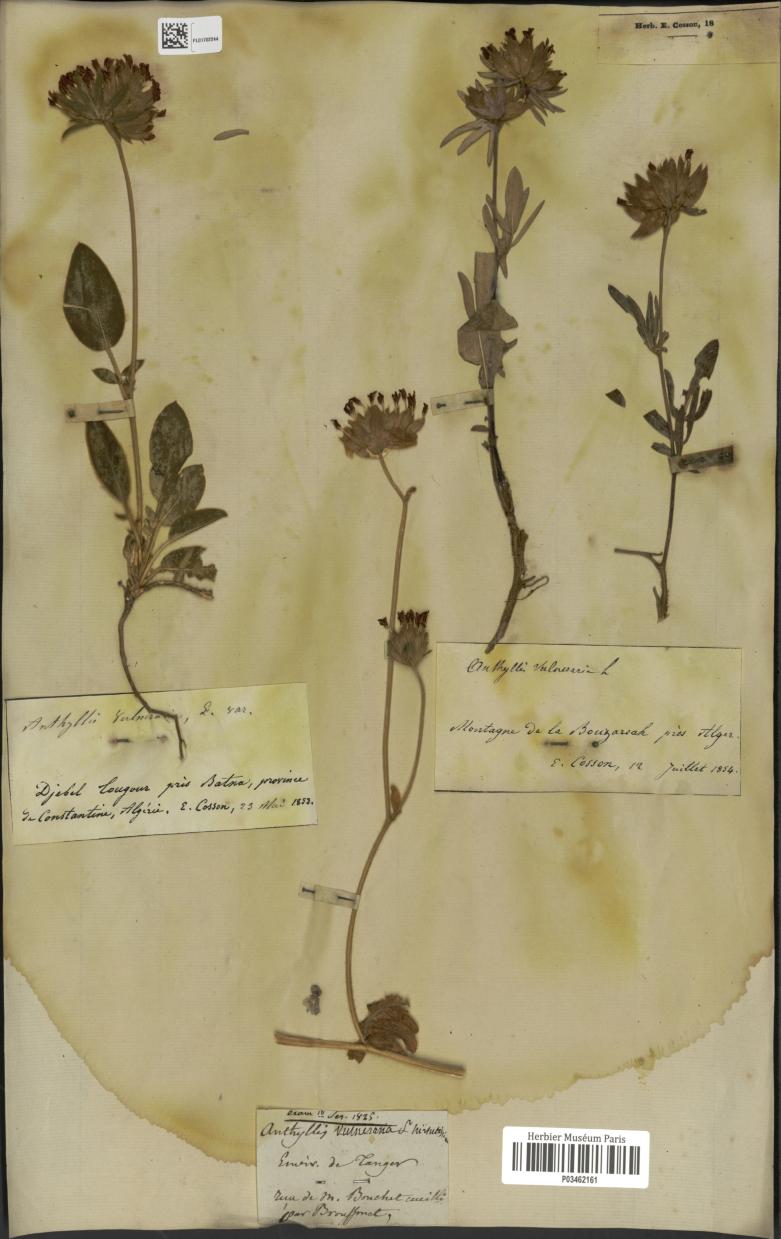 PL01782244
Herb. E. Cosson, 18
Anthyllis Vulneraria, L. var.
Djebel Tougour près Batna, province
de Constantine, Algérie. E. Cosson, 23 Mai 1853.
Anthyllis Vulneraria L
Montagne de la Bouzareah près Alger.
E. Cosson, 12 Juillet 1854.
1825.
Anthyllis Vulneraria L
Envir. de Tanger
de M. Bouchet cueilli
par Broussonet,
Herbier Muséum Paris
P03462161